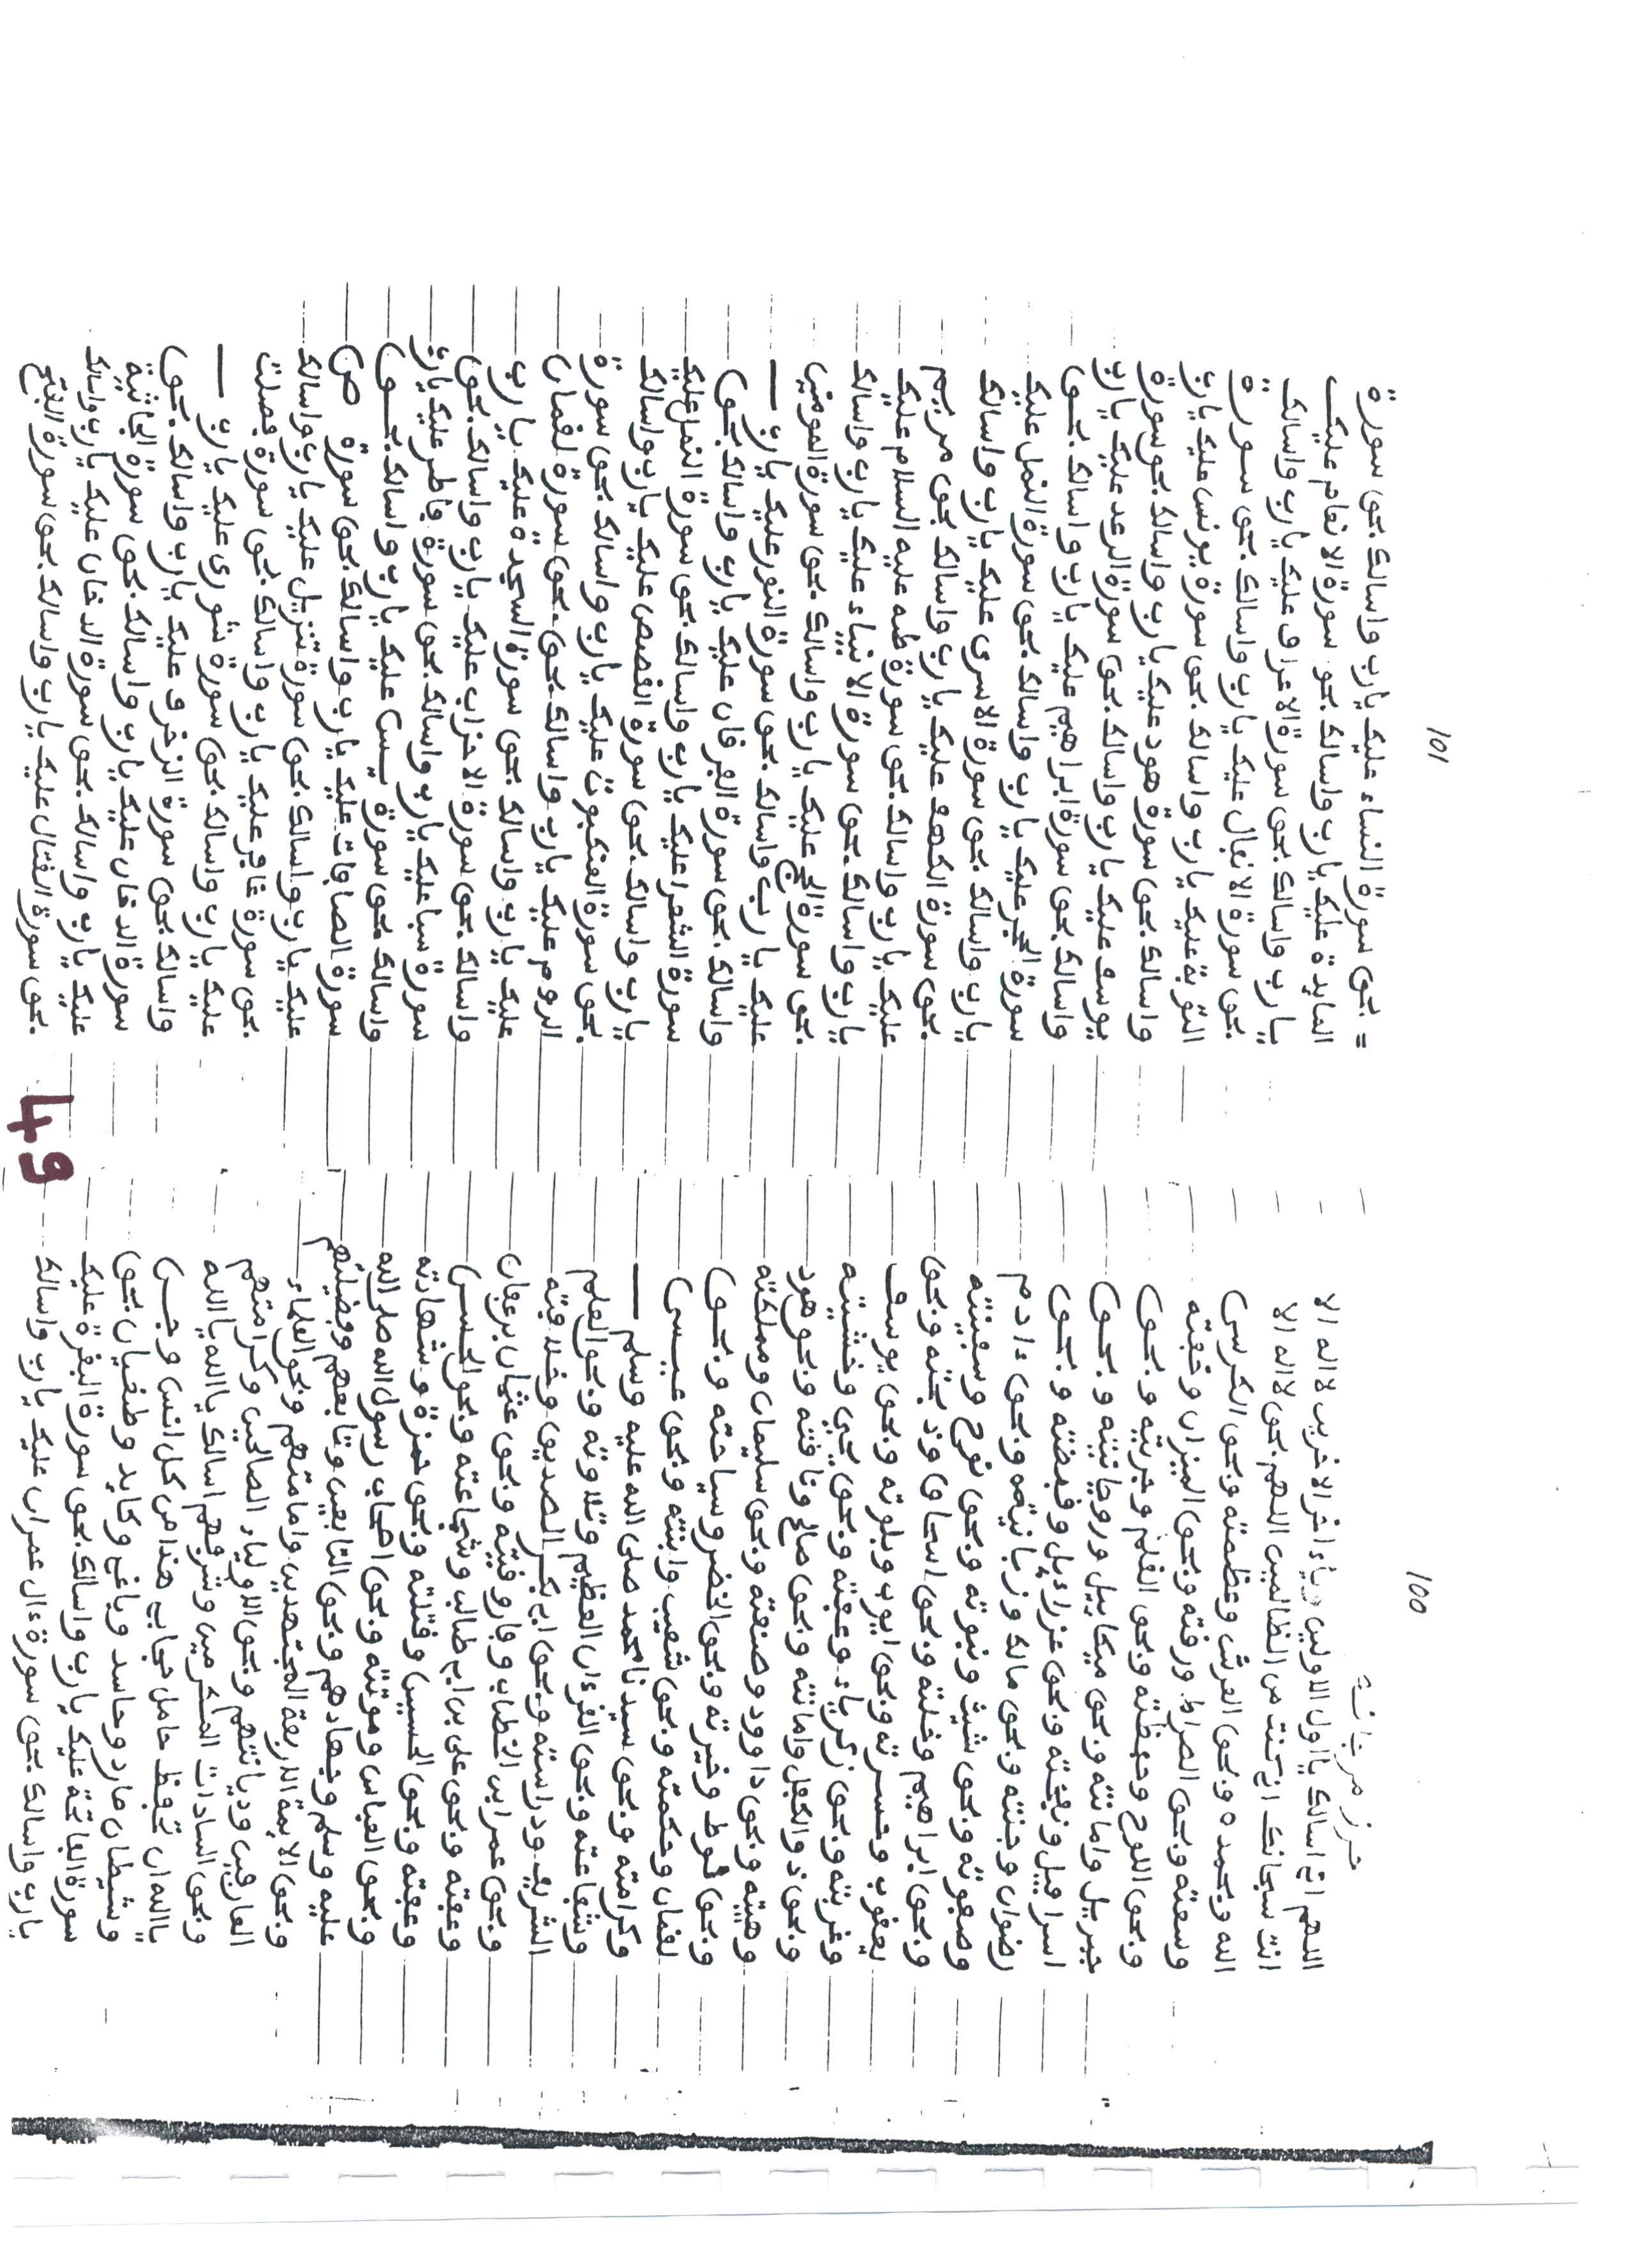 100
حرز مرجانة
اللهم اني اسالك يا اول الاولين وياءاخر الاخرين لا اله الا
انت سبحانك اني كنت من الظالمين اللهم بحق لا اله الا
الله وبحمده وبحق العرش وعظمته وبحق الكرسي
وسعته وبحق الصراط ورقته وبحق الميزان وخفته
وبحق اللوح وحفظته وبحق القلم وجريته وبحق
جبريل وامانته وبحق ميكاييل وروحانيته وبحق
اسرافيل ونفخته وبحق عزراءيل وقبضته وبحق
رضوان وجنته وبحق مالك وزبانيته وبحق ءادم
وصفوته وبحق شيث ونبوته وبحق نوح وسفينته
وبحق ابراهيم وخلته وبحق اسحاق وذبحته وبحق
يعقوب وحسرته وبحق ايوب وبلوته وبحق يوسف
وغربته وبحق زكرياء وعفته وبحق يحيى وخشيته
وبحق ذو الكفل وامانته وبحق صالح وناقته وبحق هود
وهيبته وبحق داوود وصنعته وبحق سليمان ومملكته
وبحق لوط وخيرته وبحق الخضر وسياحته وبحق
لقمان وحكمته وبحق شعيب وابنته وبحق عيسى
وكرامته وبحق سيدنا محمد صلى الله عليه وسلم
وشفاعته وبحق القرءان العظيم وتلاوته وبحق العلم
الشريف ودراسته وبحق ابي بكر الصديق وخلافته
وبحق عمر ابن الخطاب وفاروقيته وبحق عثمان بن عفان
وعفته وبحق علي بن ابي طالب وشجاعته وبحق الحسن
وعفته وبحق الحسين وقتلته وبحق حمزة وشهادته
وبحق العباس وموتته وبحق اصحاب رسول الله صلى الله
عليه وسلم وجهادهم وبحق التابعين وتابعهم وفضيلتهم
وبحق الايمة الاربعة المجتهدين وامامتهم وبحق العلماء
العارفين وديانتهم وبحق الاولياء الصالحين وكرامتهم
وبحق السادات المكرمين وشرفهم اسالك يا الله يا الله
يا الله ان تحفظ حامل حجابي هذا من كل انس وجن
وشيطان مارد وحاسد وباغي وكايد وطغيان بحق
سورة الفاتحة عليك يارب واسالك بحق سورة البقرة عليك
يارب واسالك بحق سورة ءال عمران عليك يارب واسالك
101
= بحق سورة النساء عليك يارب واسالك بحق سورة
المايدة عليك يارب واسالك بحق سورة الانعام عليك
يارب واسالك بحق سورة الاعراف عليك يارب واسالك
بحق سورة الانفال عليك يارب واسالك بحق سورة
التوبة عليك يارب واسالك بحق سورة يونس عليك يارب
واسالك بحق سورة هود عليك يارب واسالك بحق سورة
يوسف عليك يارب واسالك بحق سورة الرعد عليك يارب
واسالك بحق سورة ابراهيم عليك يارب واسالك بحق
سورة الحجر عليك يارب واسالك بحق سورة النمل عليك
يارب واسالك بحق سورة الاسرى عليك يارب واسالك
بحق سورة الكهف عليك يارب واسالك بحق مريم
عليك يارب واسالك بحق سورة طه عليه السلام عليك
يارب واسالك بحق سورة الانبياء عليك يارب واسالك
بحق سورة الحج عليك يارب واسالك بحق سورة المومنين
عليك يارب واسالك بحق سورة النور عليك يارب
واسالك بحق سورة الفرقان عليك يارب واسالك بحق
سورة الشعرا عليك يارب واسالك بحق سورة النمل عليك
يارب واسالك بحق سورة القصص عليك يارب واسالك
بحق سورة العنكبوت عليك يارب واسالك بحق سورة
الروم عليك يارب واسالك بحق بحق سورة لقمان
عليك يارب واسالك بحق سورة السجدة عليك يارب
واسالك بحق سورة الاحزاب عليك يارب واسالك بحق
سورة سبا عليك يارب واسالك بحق سورة فاطر عليك يارب
واسالك بحق سورة يس عليك يارب واسالك بحق
سورة الصافات عليك يارب واسالك بحق سورة ص
عليك يارب واسالك بحق سورة تنزيل عليك يارب واسالك
بحق سورة غافر عليك يارب واسالك بحق سورة فصلت
عليك يارب واسالك بحق سورة شورى عليك يارب
واسالك بحق سورة الزخرف عليك يارب واسالك بحق
سورة الدخان عليك يارب واسالك بحق سورة الجاثية
عليك يارب واسالك بحق سورة الدخان عليك يارب واسالك
بحق سورة القتال عليك يارب واسالك بحق سورة الفتح
49